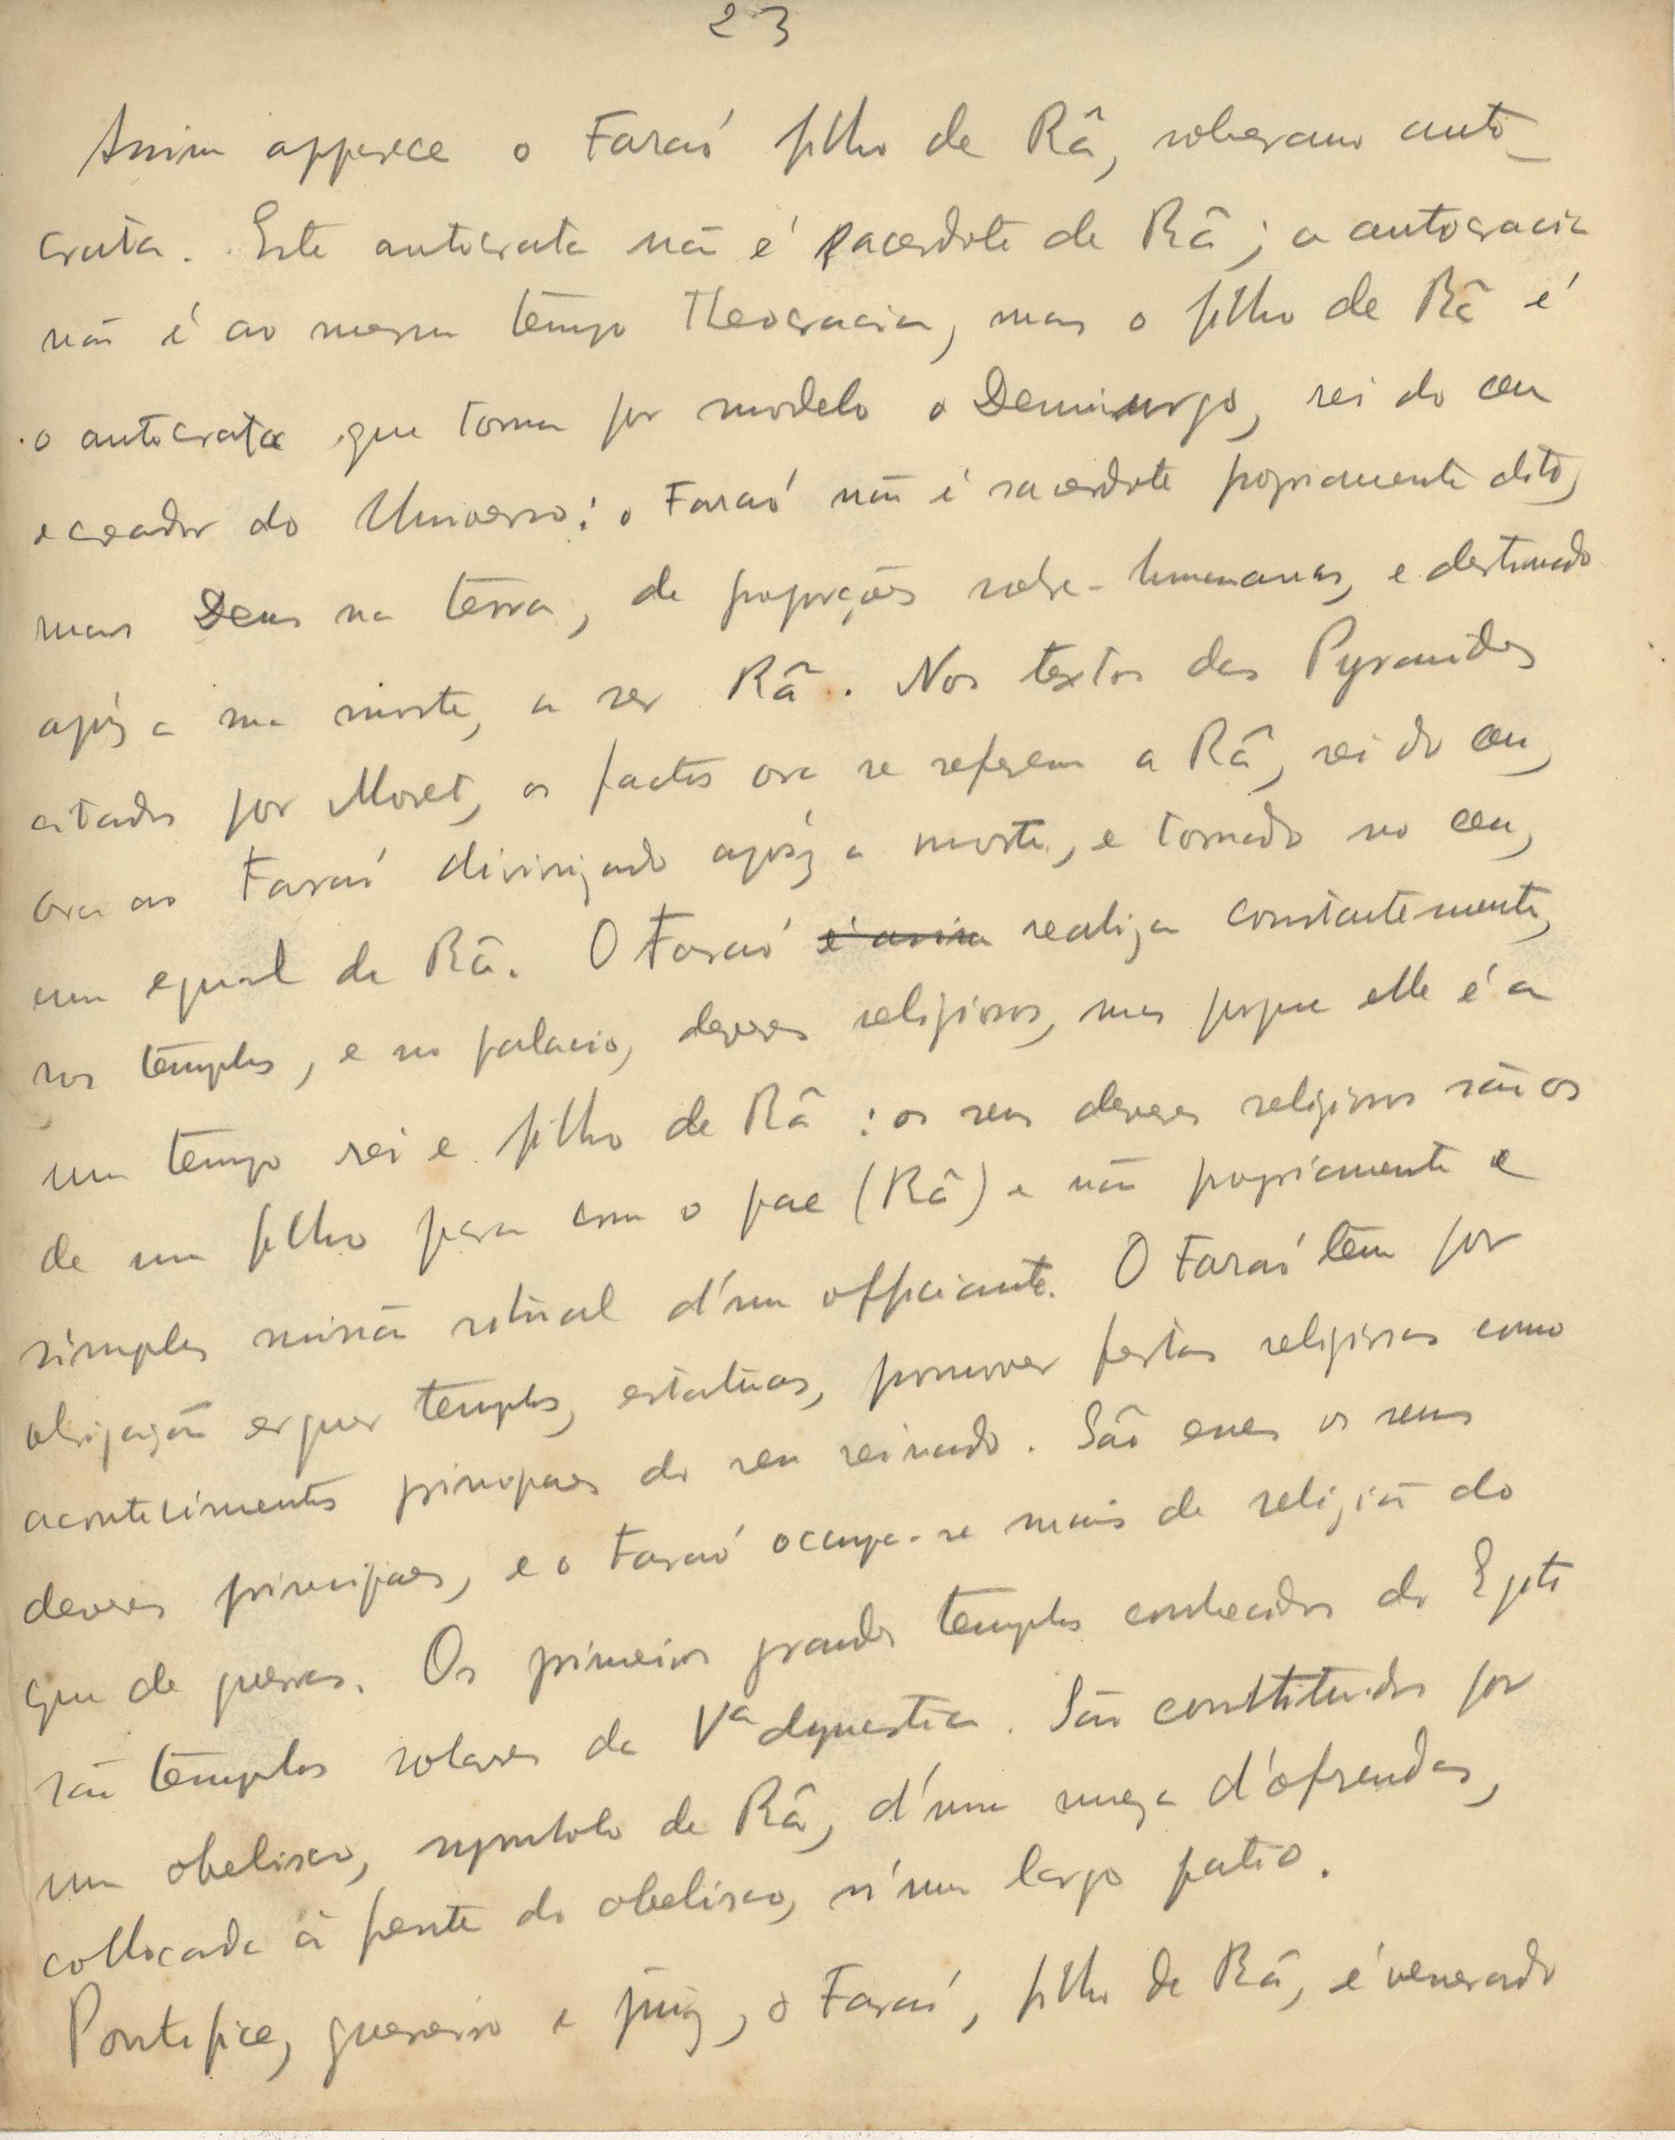 23
Assim apparece o Faraó filho de Râ, soberano auto-
crata. Este autocrata não é sacerdote de Râ; a autocracia
não é ao mesmo tempo Theocracia, mas o filho de Râ é
o autocrata que toma por modelo o Demiurgo, rei do ceu
e creador do Universo: o Faraó não é sacerdote propriamente dito,
mas Deus na terra, de proporções sobre-humanas, e destinado
após a sua morte, a ser Râ. Nos textos das Pyramides
citados por Moret, os factos ora se referem a Râ, rei do ceu,
ora ao Faraó divinizado após a morte, e tornado no ceu,
um egual de Râ. O Faraó é assim realiza constantemente,
nos templos, e no palacio, deveres religiosos, mas porque elle é a
um tempo rei e filho de Râ: os seus deveres religiosos são os
de um filho para com o pae (Râ) e não propriamente e
simples missão ritual d'um officiante. O Faraó têm por
obrigação erguer templos, estatuas, promover festas religiosas como
acontecimentos principaes do seu reinado. São esses os seus
deveres principaes, e o Faraó occupa-se mais de religião do
que de guerras. Os primeiros grandes templos conhecidos do Egito
são templos solares da Vª dynastia. São constituidos por
um obelisco, symbolo de Râ, d'uma meza d'ofrendas,
collocada à frente do obelisco, n'um largo patio.
Pontifice, guerreiro e juiz, o Faraó, filho de Râ, é venerado